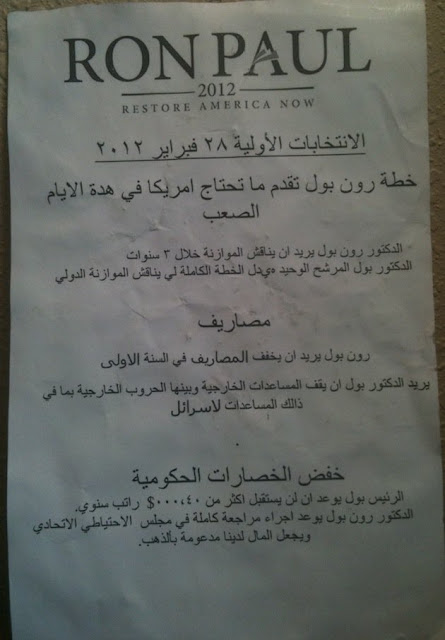 RON PAUL
2012
RESTORE AMERICA NOW
الانتخابات الأولية ٢٨ فبراير ٢٠١٢
خطة رون بول تقدم ما تحتاج امريكا في هدة الايام
الصعب
الدكتور رون بول يريد ان يناقش الموازنة خلال ٣ سنوات
الدكتور بول المرشح الوحيد الخطة الكاملة لي يناقش الموازنة الدولي
مصاريف
رون بول يريد ان يخفف المصاريف في السنة الاولى
يريد الدكتور بول ان يقف المساعدات الخارجية وبينها الحروب الخارجية بما في
ذالك المساعدات لاسرائل
.
خفض الخصارات الحكومية
الرئيس بول يوعد ان لن يستقبل اكثر من ٤٠،٠٠٠$ راتب سنوي.
الدكتور رون بول يوعد اجراء مراجعة كاملة في مجلس الاحتياطي الاتحادي
ويجعل المال لدينا مدعومة بألذهب.